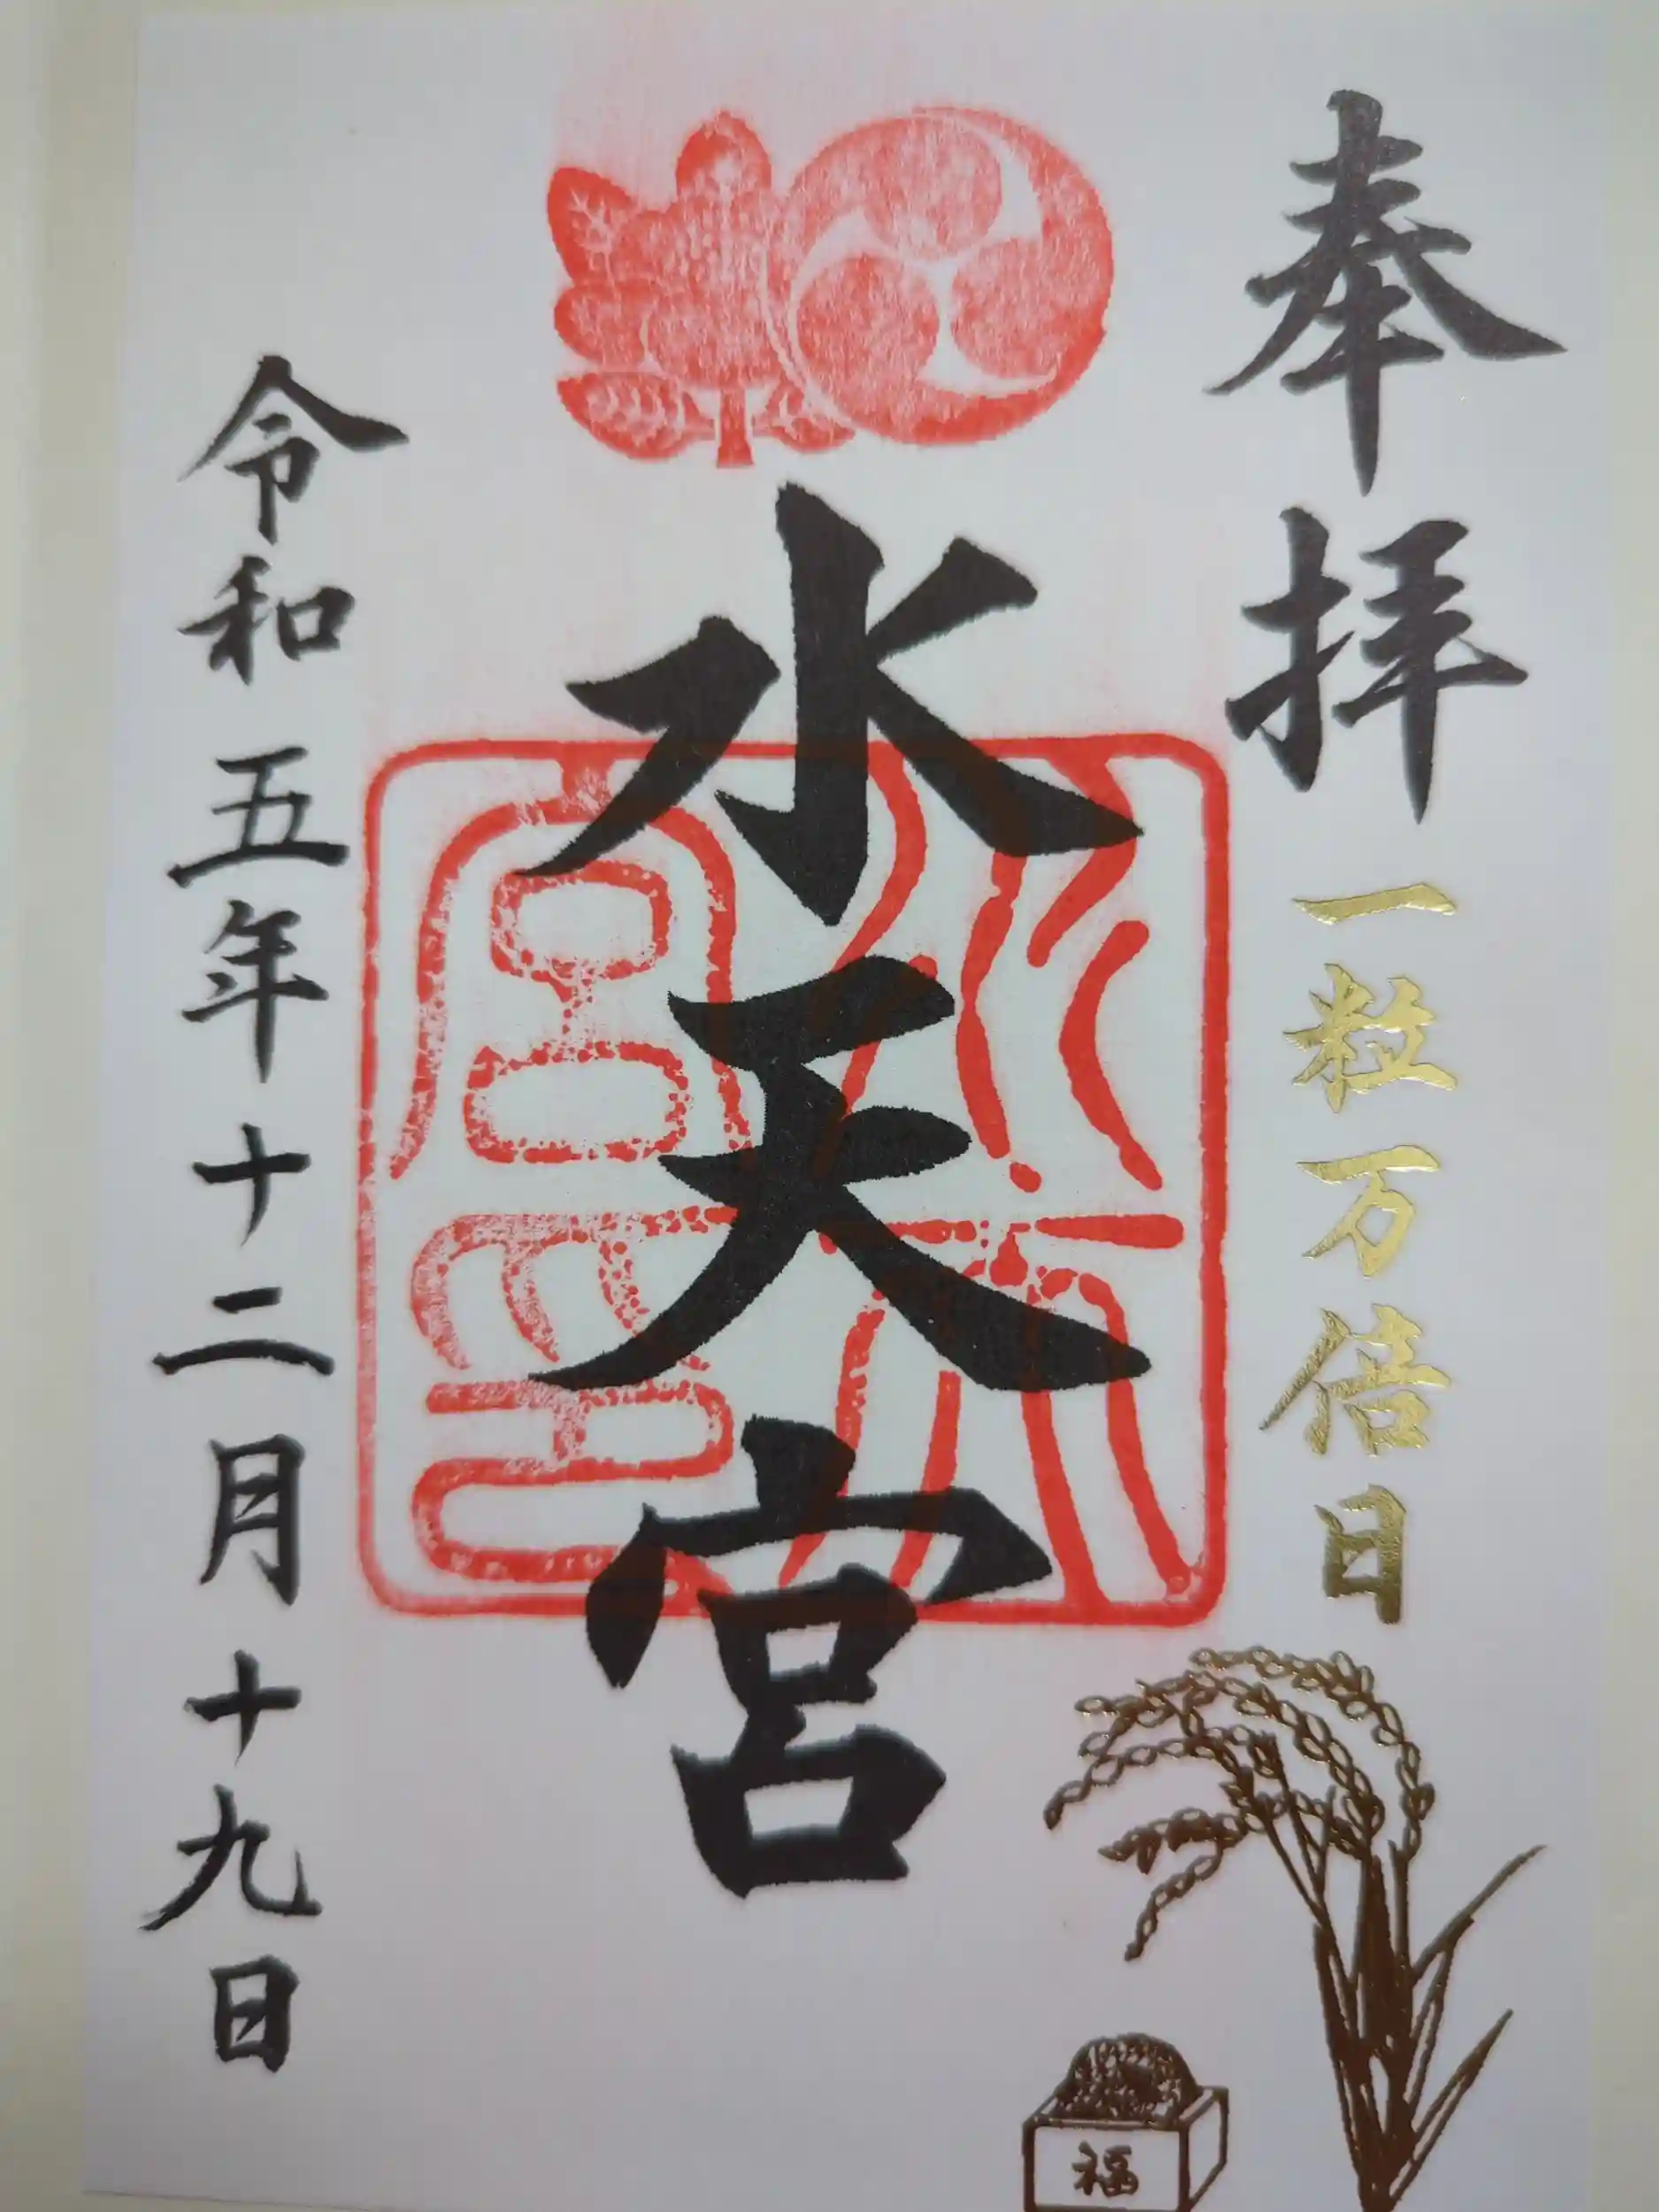 奉拝
一粒万倍日
福
水天宮
水天宮璽
令和五年十二月十九日